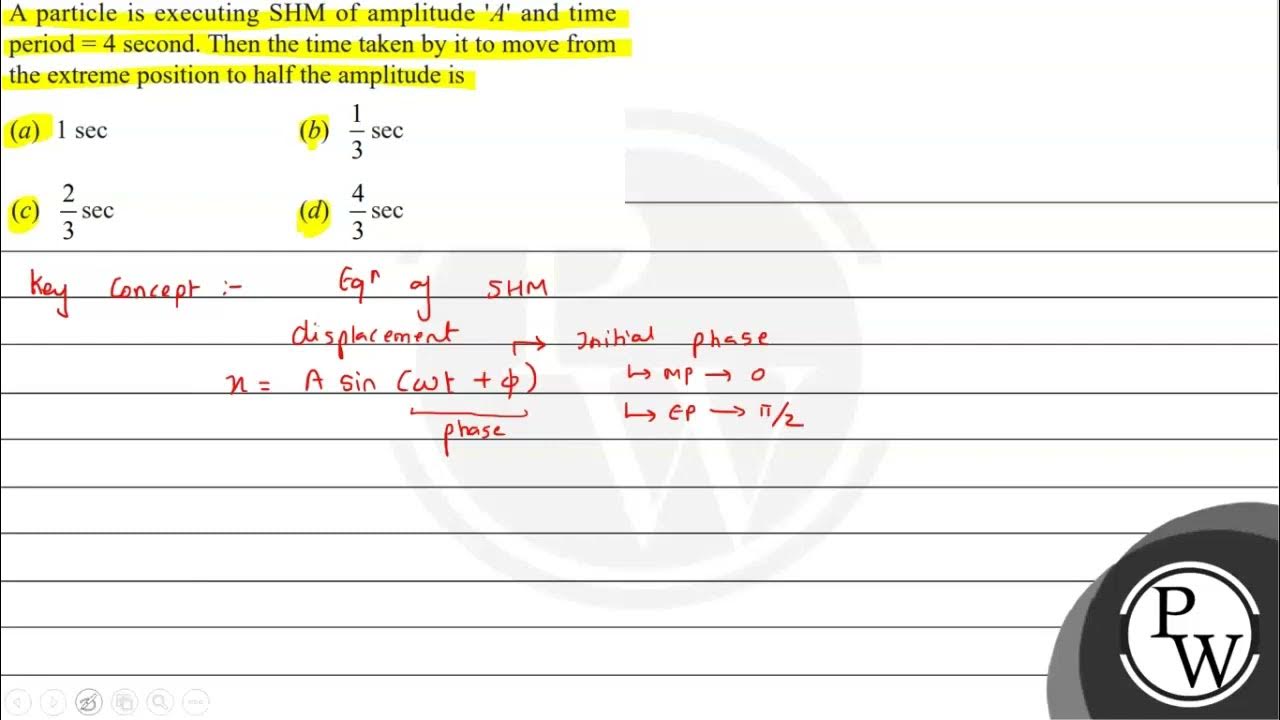 A particle is executing SHM of amplitude 'A' and time
period = 4 second. Then the time taken by it to move from
the extreme position to half the amplitude is
(a) 1 sec (b) 1/3 sec
(c) 2/3 sec (d) 4/3 sec
Key Concept :- Eqn of SHM
displacement → Initial phase
x = A sin (ωt + φ) ↳ MP → 0
phase ↳ EP → π/2
P
W
P
W